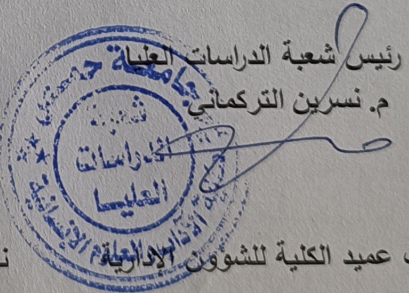 رئيس شعبة الدراسات العليا
م. نسرين التركماني
جامعة حمص
شعبة
الدراسات
العليا
كلية الآداب والعلوم الإنسانية
عميد الكلية للشؤون الإدارية